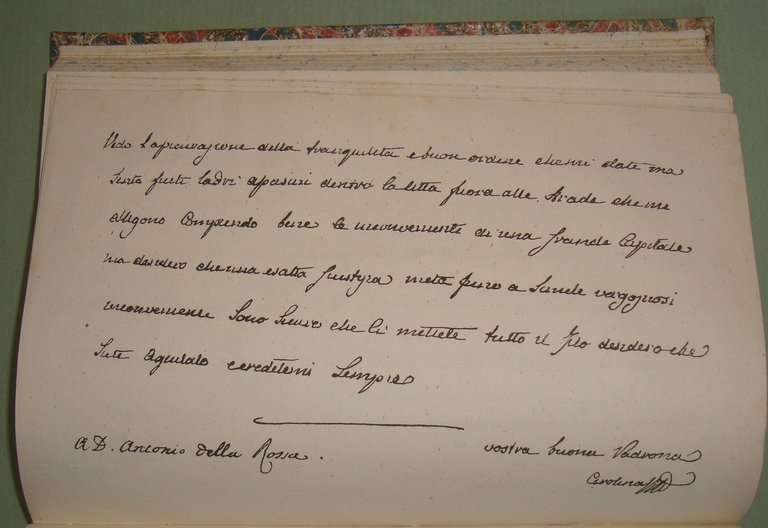 Vedo l'aprovazione della tranquilità e buon ordine che mi date ma
furti ladri dentro la città fuora alle Strade che me
afligono Comprendo bene le inconvenienti di una grande Capitale
ma desidero che una esatta Justizia meta freno a Simile vergognosi
inconveniente Sono Sicuro che li mettete tutto il desidero che
Siate ceredetemi Sempre
A D. Antonio della Rossa.
vostra buona Padrona
Carolina